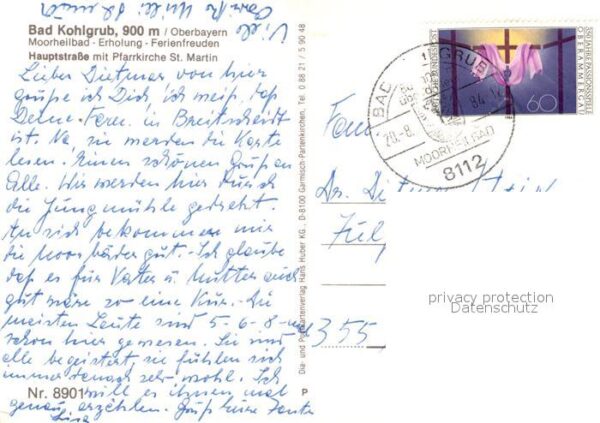 Viele
Bad Kohlgrub, 900 m / Oberbayern
Moorheilbad · Erholung · Ferienfreuden
Hauptstraße mit Pfarrkirche St. Martin
Lieber Dietmar von hier
grüße ich Dich, ich weiß, daß
Deine Fam. in Breitscheidt
ist. Na, sie werden die Karte
lesen. Einen schönen Gruß an
Alle. Wir werden hier durch
die Jungmühle gedreht.
An sich bekommen mir
die Moorbäder gut. Ich glaube
daß es für Vater u. Mutter auch
gut wäre so eine Kur. Die
meisten Leute sind 5-6-8-mal
schon hier gewesen. Sie sind
alle begeistert, sie fühlen sich
immer danach sehr wohl. Ich
will es ihnen mal
genau erzählen. Gruß Eure Tante
Nr. 8901
Dia- und Postkartenverlag Hans Huber KG., D-8100 Garmisch-Partenkirchen, Tel. 0 88 21 / 5 90 48
P
350 JAHRE PASSIONSSPIELE
OBERAMMERGAU
60
DEUTSCHE BUNDESPOST
BAD KOHLGRUB
20.-8. 84
MOORHEILBAD
8112
Fam
Dr. Dietmar
Jül
355
privacy protection
Datenschutz